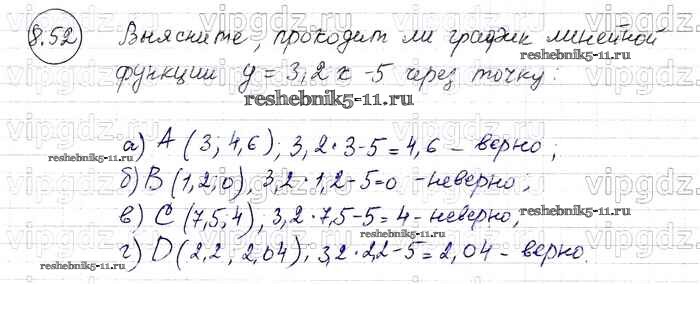 8.52 Выясните, проходит ли график линейной
reshebnik5-11.ru
функции y = 3,2x - 5 через точку:
reshebnik5-11.ru
а) A (3; 4,6), 3,2·3-5=4,6 - верно;
reshebnik5-11.ru
б) B (1,2; 0), 3,2·1,2-5=0 - неверно;
в) C (7,5; 4), 3,2·7,5-5=4 - неверно;
reshebnik5-11.ru
г) D (2,2; 2,04), 3,2·2,2-5=2,04 - верно.
reshebnik5-11.ru
vipgdz.ru